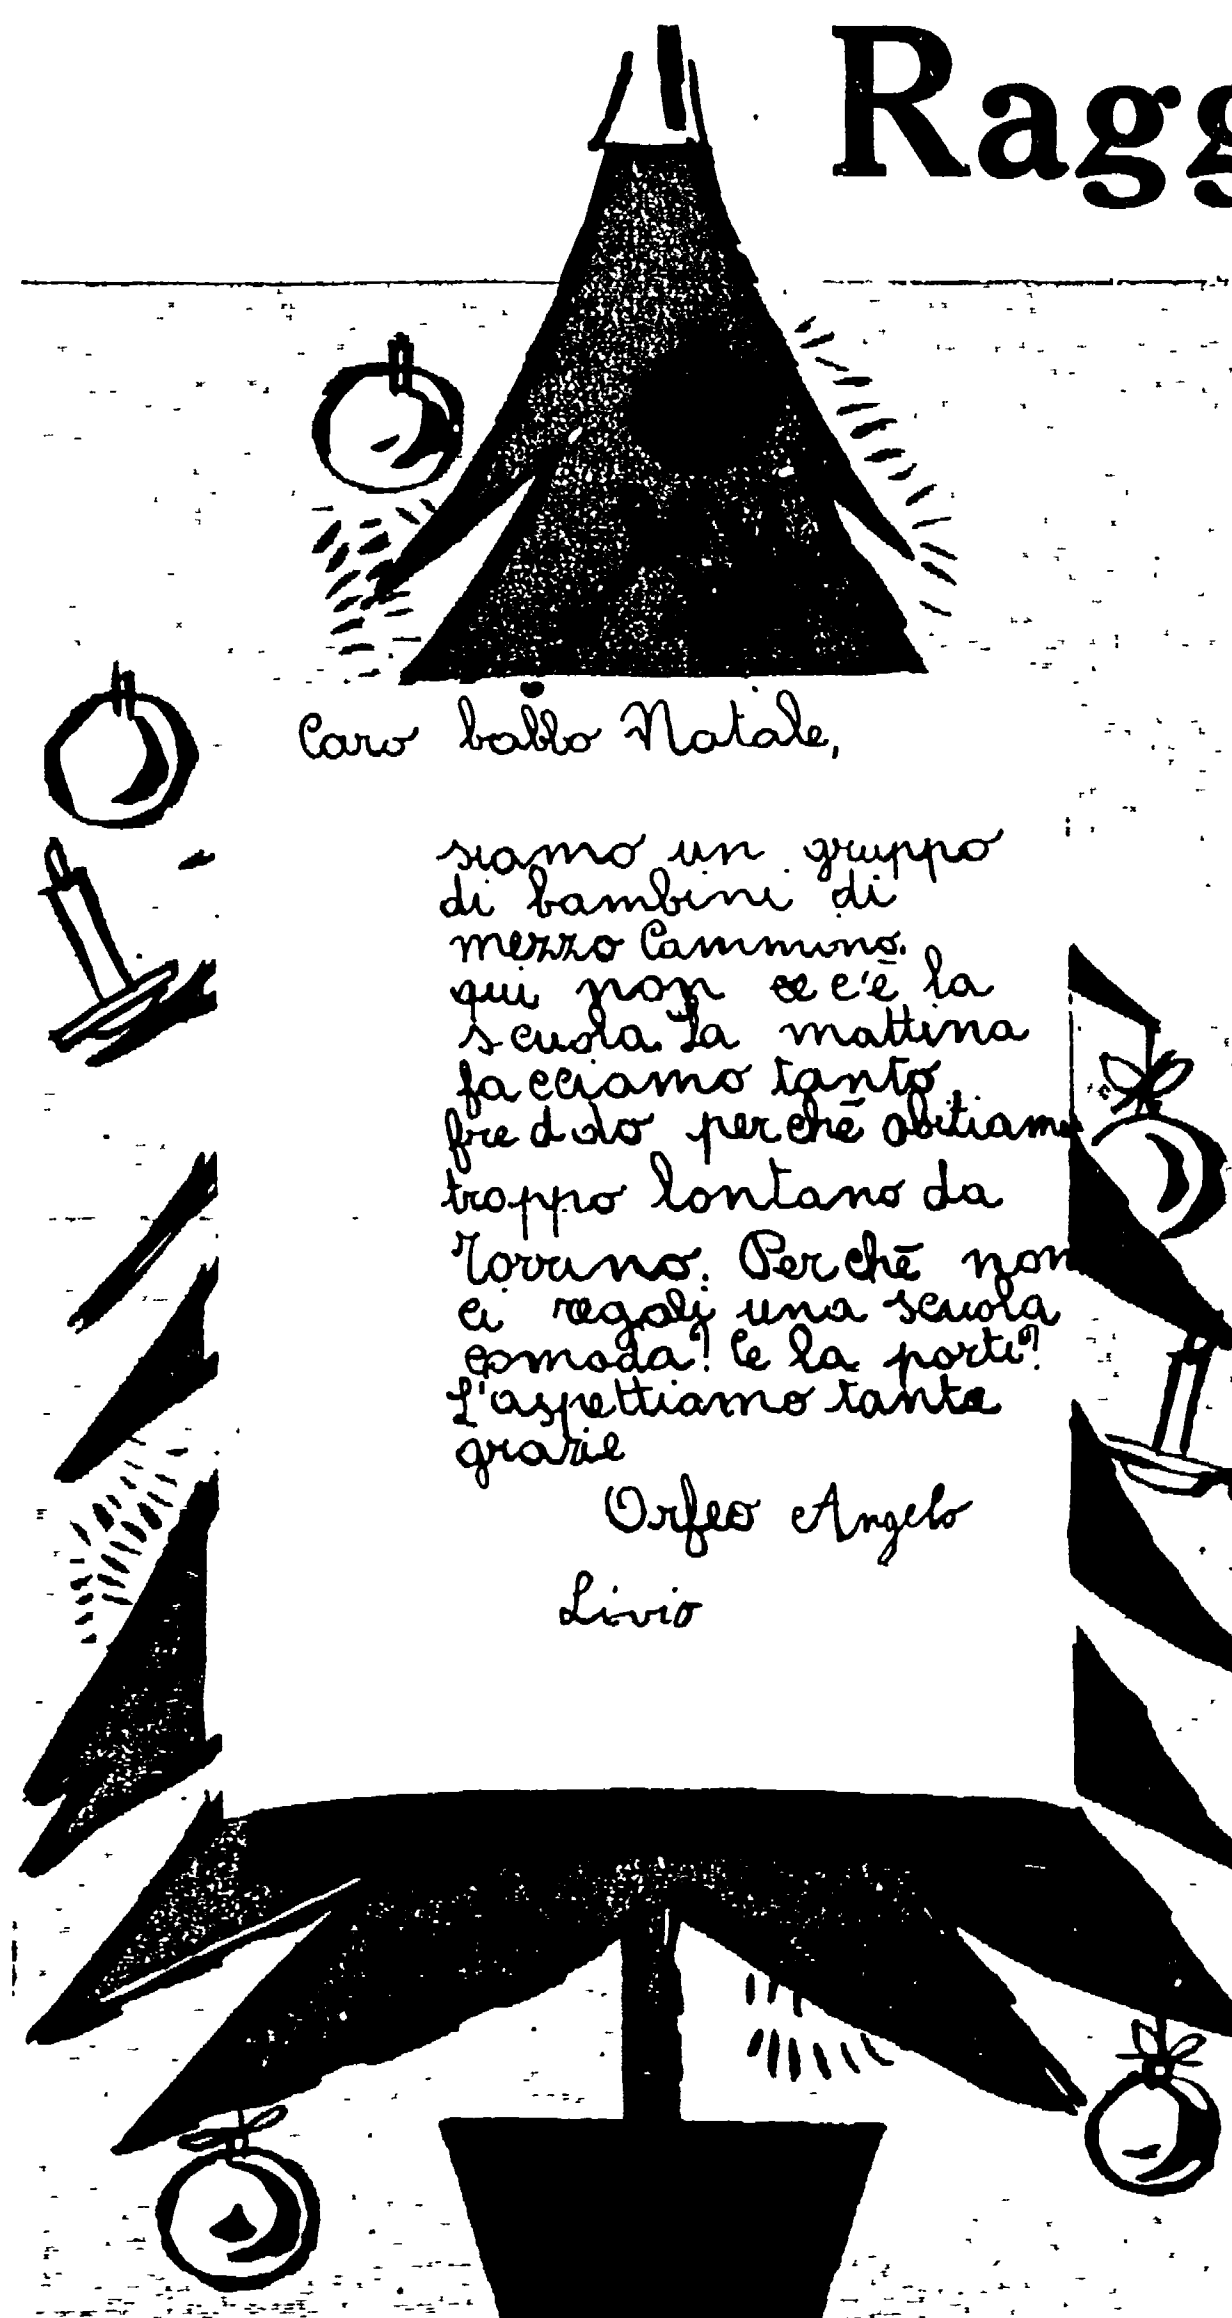 Ragg
Caro babbo Natale,
siamo un gruppo
di bambini di
mezzo Cammino.
qui non c'è la
scuola. La mattina
facciamo tanto
freddo perchè abitiamo
troppo lontano da
Torrino. Perchè non
ci regali una scuola
comoda? Ce la porti?
L'aspettiamo tante
grazie
Orfeo Angelo
Livio